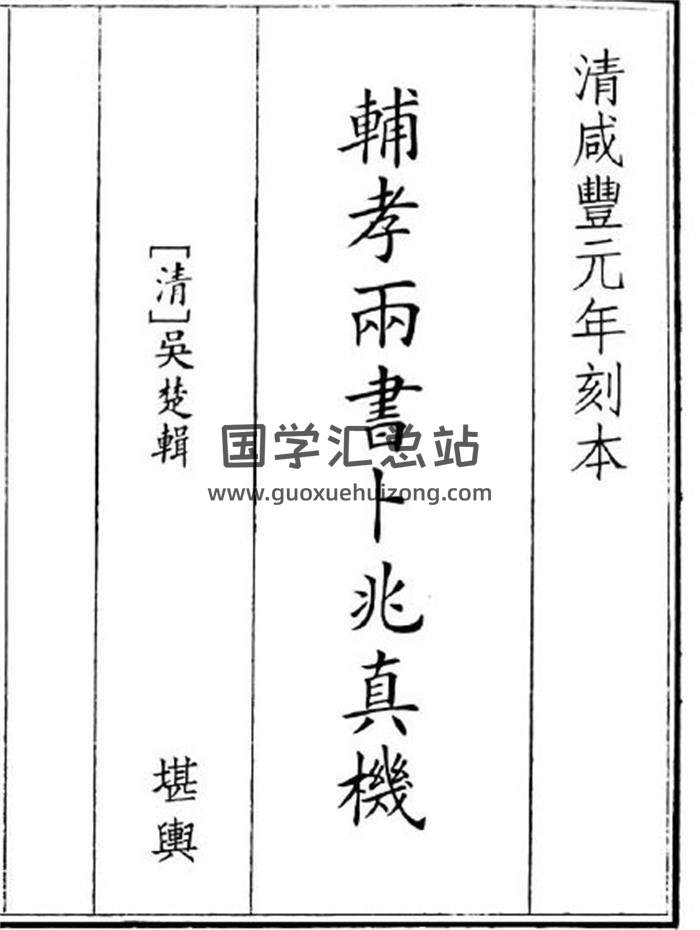 清咸豐元年刻本
輔孝兩書卜兆真機
[清]吳楚輯
堪輿
国学汇总站
www.guoxuehuizong.com